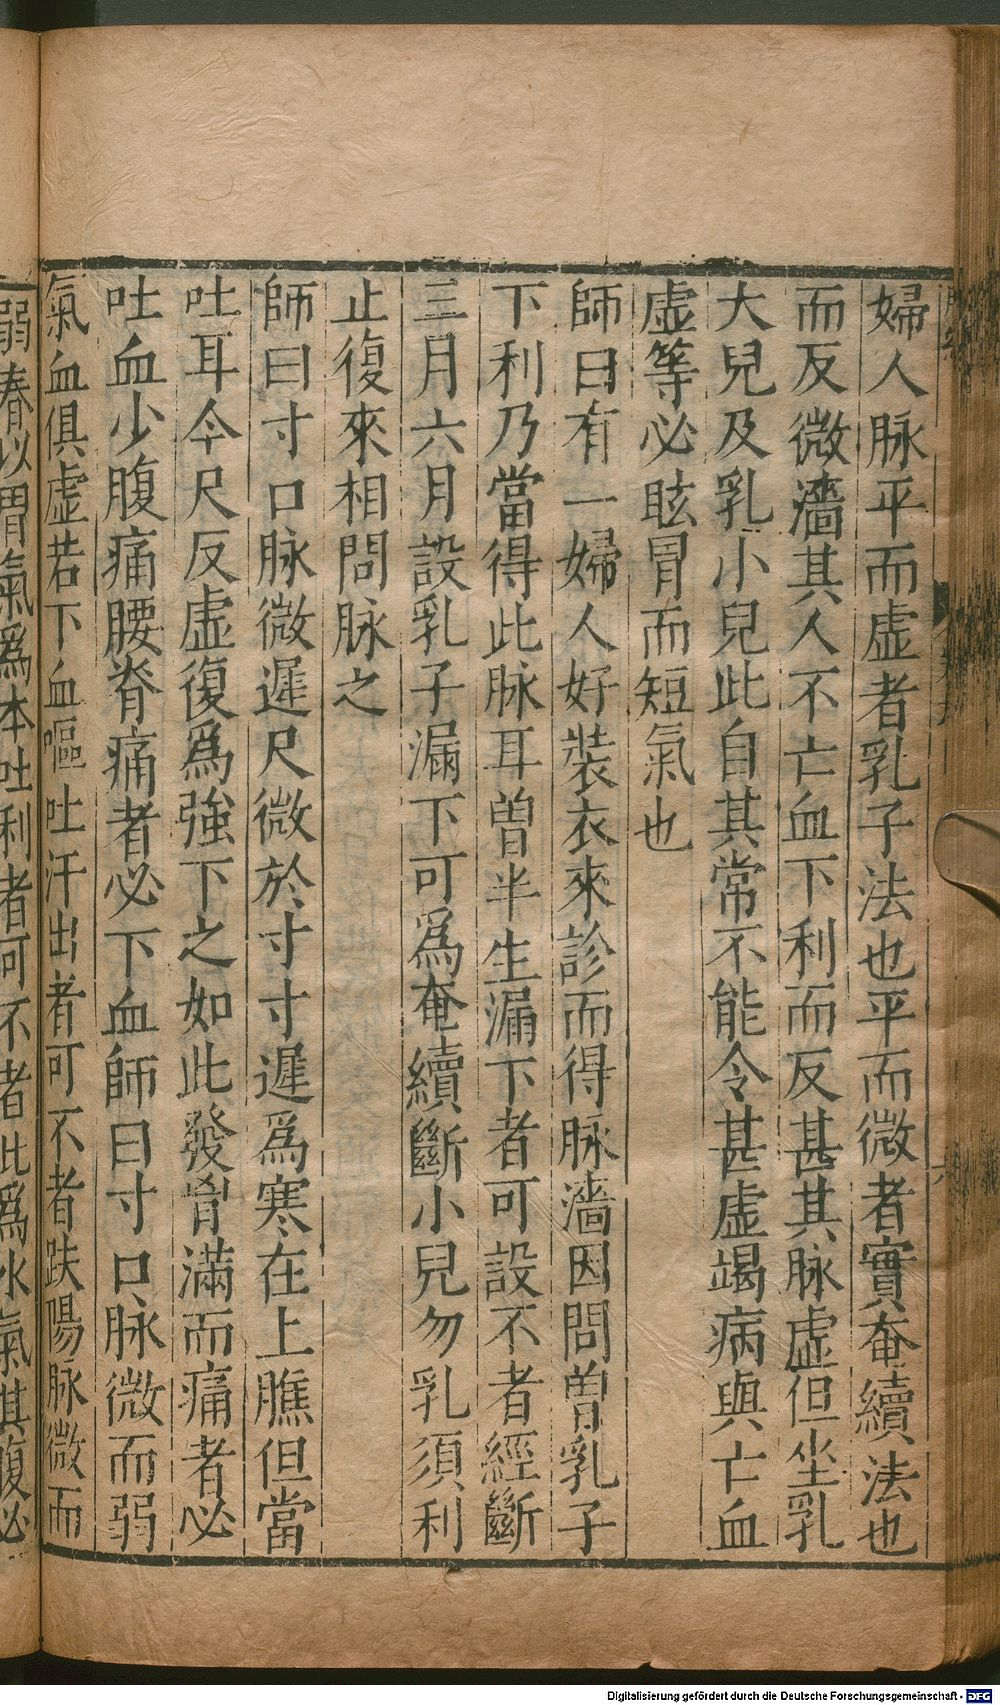 婦人脉平而虚者乳子法也平而微者實奄續法也
而反微濇其人不亡血下利而反甚其脉虚但坐乳
大兒及乳小兒此自其常不能令甚虚竭病與亡血
虚等必眩冒而短氣也
師曰有一婦人好裝衣來診而得脉濇因問曽乳子
下利乃當得此脉耳曽半生漏下者可設不者經斷
三月六月設乳子漏下可爲奄續斷小兒勿乳須利
止復來相問脉之
師曰寸口脉微遲尺微於寸寸遲爲寒在上膲但當
吐耳今尺反虚復爲強下之如此發胷滿而痛者必
吐血少腹痛腰脊痛者必下血師曰寸口脉微而弱
氣血俱虚若下血嘔吐汗出者可不者趺陽脉微而
弱春以胃氣爲本吐利者可不者此爲水氣其腹必
Digitalisierung gefördert durch die Deutsche Forschungsgemeinschaft - DFG